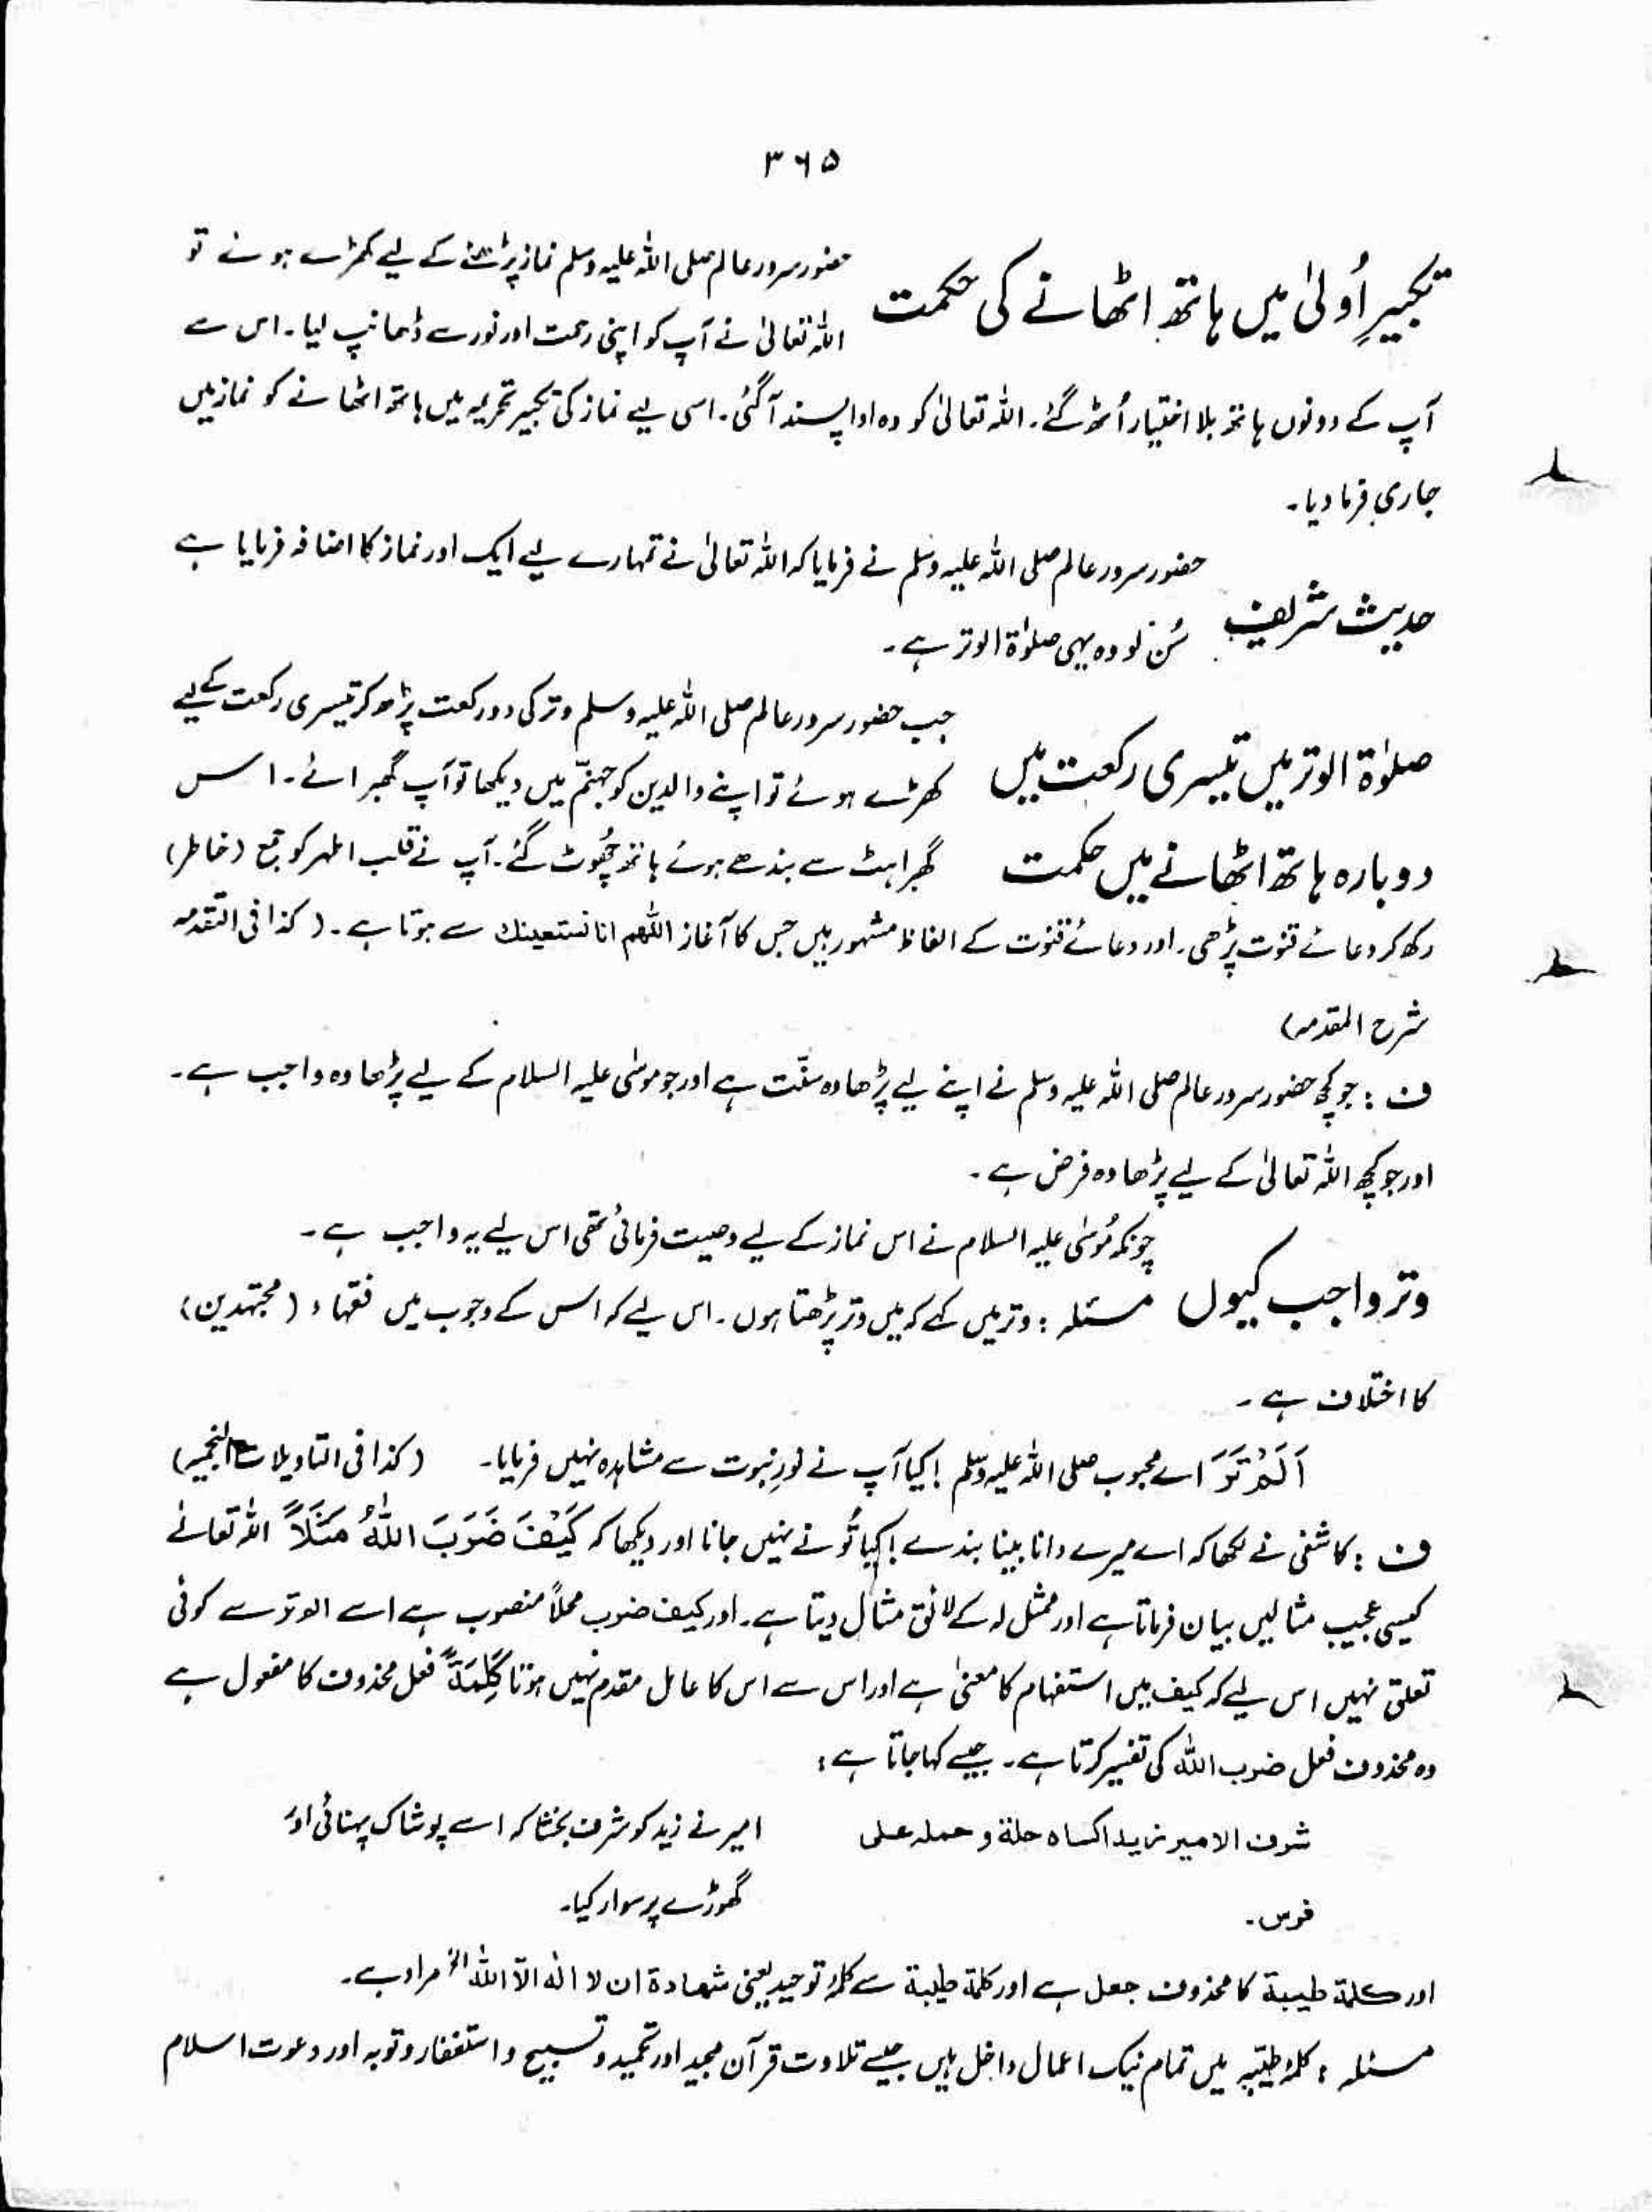 ۳۶۵
تکبیرِ اُولیٰ میں ہاتھ اٹھانے کی حکمت
حضور سرور عالم صلی اللہ علیہ وسلم نماز پڑھنے کے لیے کھڑے ہوئے تو
اللہ تعالیٰ نے آپ کو اپنی رحمت اور نور سے ڈھانپ لیا۔ اس سے
آپ کے دونوں ہاتھ بلا اختیار اُٹھ گئے۔ اللہ تعالیٰ کو وہ ادا پسند آگئی۔ اسی لیے نماز کی تکبیر تحریمہ میں ہاتھ اٹھانے کو نماز میں
جاری فرما دیا۔
حدیث شریف
حضور سرور عالم صلی اللہ علیہ وسلم نے فرمایا کہ اللہ تعالیٰ نے تمہارے لیے ایک اور نماز کا اضافہ فرمایا ہے
سُن لو وہ یہی صلوٰۃ الوتر ہے۔
صلوٰۃ الوتر میں تیسری رکعت میں
دوبارہ ہاتھ اٹھانے میں حکمت
جب حضور سرور عالم صلی اللہ علیہ وسلم وتر کی دو رکعت پڑھ کر تیسری رکعت کے لیے
کھڑے ہوئے تو اپنے والدین کو جہنّم میں دیکھا تو آپ گھبرائے۔ اس
گھبراہٹ سے بندھے ہوئے ہاتھ چُھوٹ گئے۔ آپ نے قلب اطہر کو جمع (خاطر)
رکھ کر دعائے قنوت پڑھی۔ اور دعائے قنوت کے الفاظ مشہور ہیں جس کا آغاز اللھم انا نستعینك سے ہوتا ہے۔ (کذا فی التقدمہ
شرح المقدمہ)
ف : جو کچھ حضور سرور عالم صلی اللہ علیہ وسلم نے اپنے لیے پڑھا وہ سنّت ہے اور جو موسٰی علیہ السلام کے لیے پڑھا وہ واجب ہے۔
اور جو کچھ اللہ تعالیٰ کے لیے پڑھا وہ فرض ہے۔
وتر واجب کیوں
چونکہ مُوسٰی علیہ السلام نے اس نماز کے لیے وصیت فرمائی تھی اس لیے یہ واجب ہے۔
مسئلہ : وتر میں کہے کہ میں وتر پڑھتا ہوں۔ اس لیے کہ اس کے وجوب میں فقہاء (مجتہدین)
کا اختلاف ہے۔
اَلَمْ تَرَ اے محبوب صلی اللہ علیہ وسلم! کیا آپ نے نورِ نبوت سے مشاہدہ نہیں فرمایا۔ (کذا فی التاویلات النجمیہ)
ف : کاشفی نے لکھا کہ اے میرے دانا بینا بندے! کیا تُو نے نہیں جانا اور دیکھا کہ كَيْفَ ضَرَبَ اللّٰهُ مَثَلاً اللہ تعالےٰ
کیسی عجیب مثالیں بیان فرماتا ہے اور ممثل لہ کے لائق مثال دیتا ہے۔ اور کیف ضرب محلاً منصوب ہے اسے الم تر سے کوئی
تعلق نہیں اس لیے کہ کیف میں استفہام کا معنیٰ ہے اور اس سے اس کا عامل مقدم نہیں ہوتا كَلِمَةً فعل محذوف کا مفعول ہے
وہ محذوف فعل ضرب اللہ کی تفسیر کرتا ہے۔ جیسے کہا جاتا ہے :
شرف الامیر زیدا کساہ حلة و حملہ علی
فرس۔
امیر نے زید کو شرف بخشا کہ اسے پوشاک پہنائی اور
گھوڑے پر سوار کیا۔
اور کلمة طیبة کا محذوف جعل ہے اور کلمة طیبة سے کلمۂ توحید یعنی شھادة ان لا الٰه الّا اللہ الخ مراد ہے۔
مسئلہ : کلمۂ طیّبہ میں تمام نیک اعمال داخل ہیں جیسے تلاوت قرآن مجید اور تحمید و تسبیح و استغفار و توبہ اور دعوت اسلام